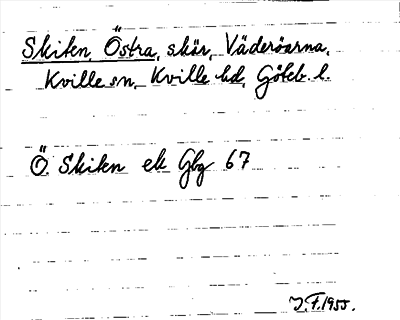 Skiten, Östra, skär, Väderöarna,
Kville sn, Kville hd, Göteb. l.
Ö. Skiten ek Gbg 67
J.F. 1955.